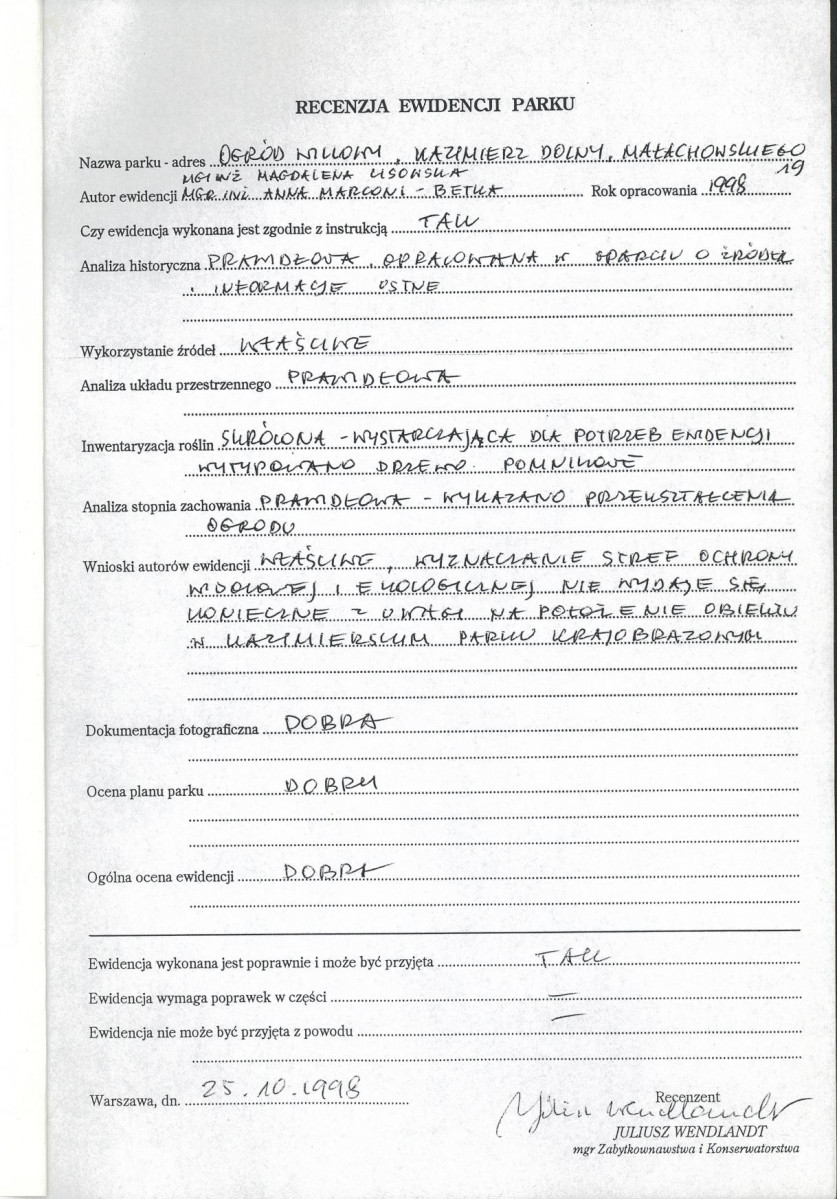 RECENZJA EWIDENCJI PARKU
Nazwa parku - adres OGRÓD WILLOWY, KAZIMIERZ DOLNY, MAŁACHOWSKIEGO 19
MGR INŻ MAGDALENA LISOWSKA
Autor ewidencji MGR INŻ. ANNA MARCONI - BETKA Rok opracowania 1998
Czy ewidencja wykonana jest zgodnie z instrukcją TAK
Analiza historyczna PRAWIDŁOWA, OPRACOWANA W OPARCIU O ŹRÓDŁA
I INFORMACJE USTNE
Wykorzystanie źródeł WŁAŚCIWE
Analiza układu przestrzennego PRAWIDŁOWA
Inwentaryzacja roślin SKRÓCONA - WYSTARCZAJĄCA DLA POTRZEB EWIDENCJI
WYTYPOWANO DRZEWO POMNIKOWE
Analiza stopnia zachowania PRAWIDŁOWA - WYKAZANO PRZEKSZTAŁCENIA
OGRODU
Wnioski autorów ewidencji WŁAŚCIWE, WYZNACZANIE STREF OCHRONY
WIDOKOWEJ I EKOLOGICZNEJ NIE WYDAJE SIĘ
KONIECZNE Z UWAGI NA POŁOŻENIE OBIEKTU
W KAZIMIERSKIM PARKU KRAJOBRAZOWYM
Dokumentacja fotograficzna DOBRA
Ocena planu parku DOBRY
Ogólna ocena ewidencji DOBRA
Ewidencja wykonana jest poprawnie i może być przyjęta TAK
Ewidencja wymaga poprawek w części —
Ewidencja nie może być przyjęta z powodu —
Warszawa, dn. 25.10.1998
Recenzent
Juliusz Wendlandt
JULIUSZ WENDLANDT
mgr Zabytkownawstwa i Konserwatorstwa